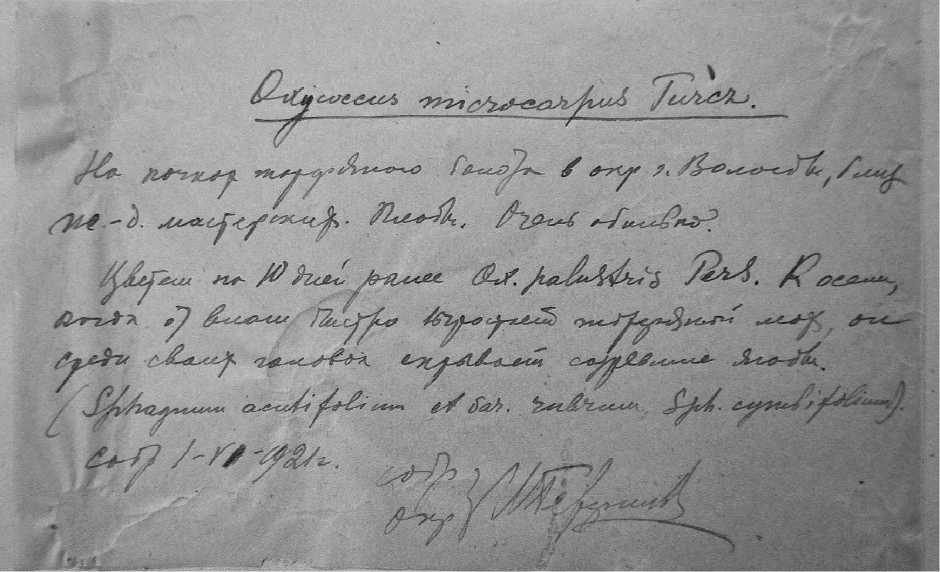 Oxycoccus microcarpus Turcz.
На кочках торфяного болота в окр. г. Вологды, близ
ж.-д. мастерских. Плоды. Очень обильно.
Цветет на 10 дней ранее Ox. palustris Pers. К осени,
когда от влаги быстро вырастает торфяной мох, он
среди своих головок скрывает созревшие ягоды.
(Sphagnum acutifolium et var. rubrum, Sph. cymbifolium).
собр 1-VI-921г.
собр
опр